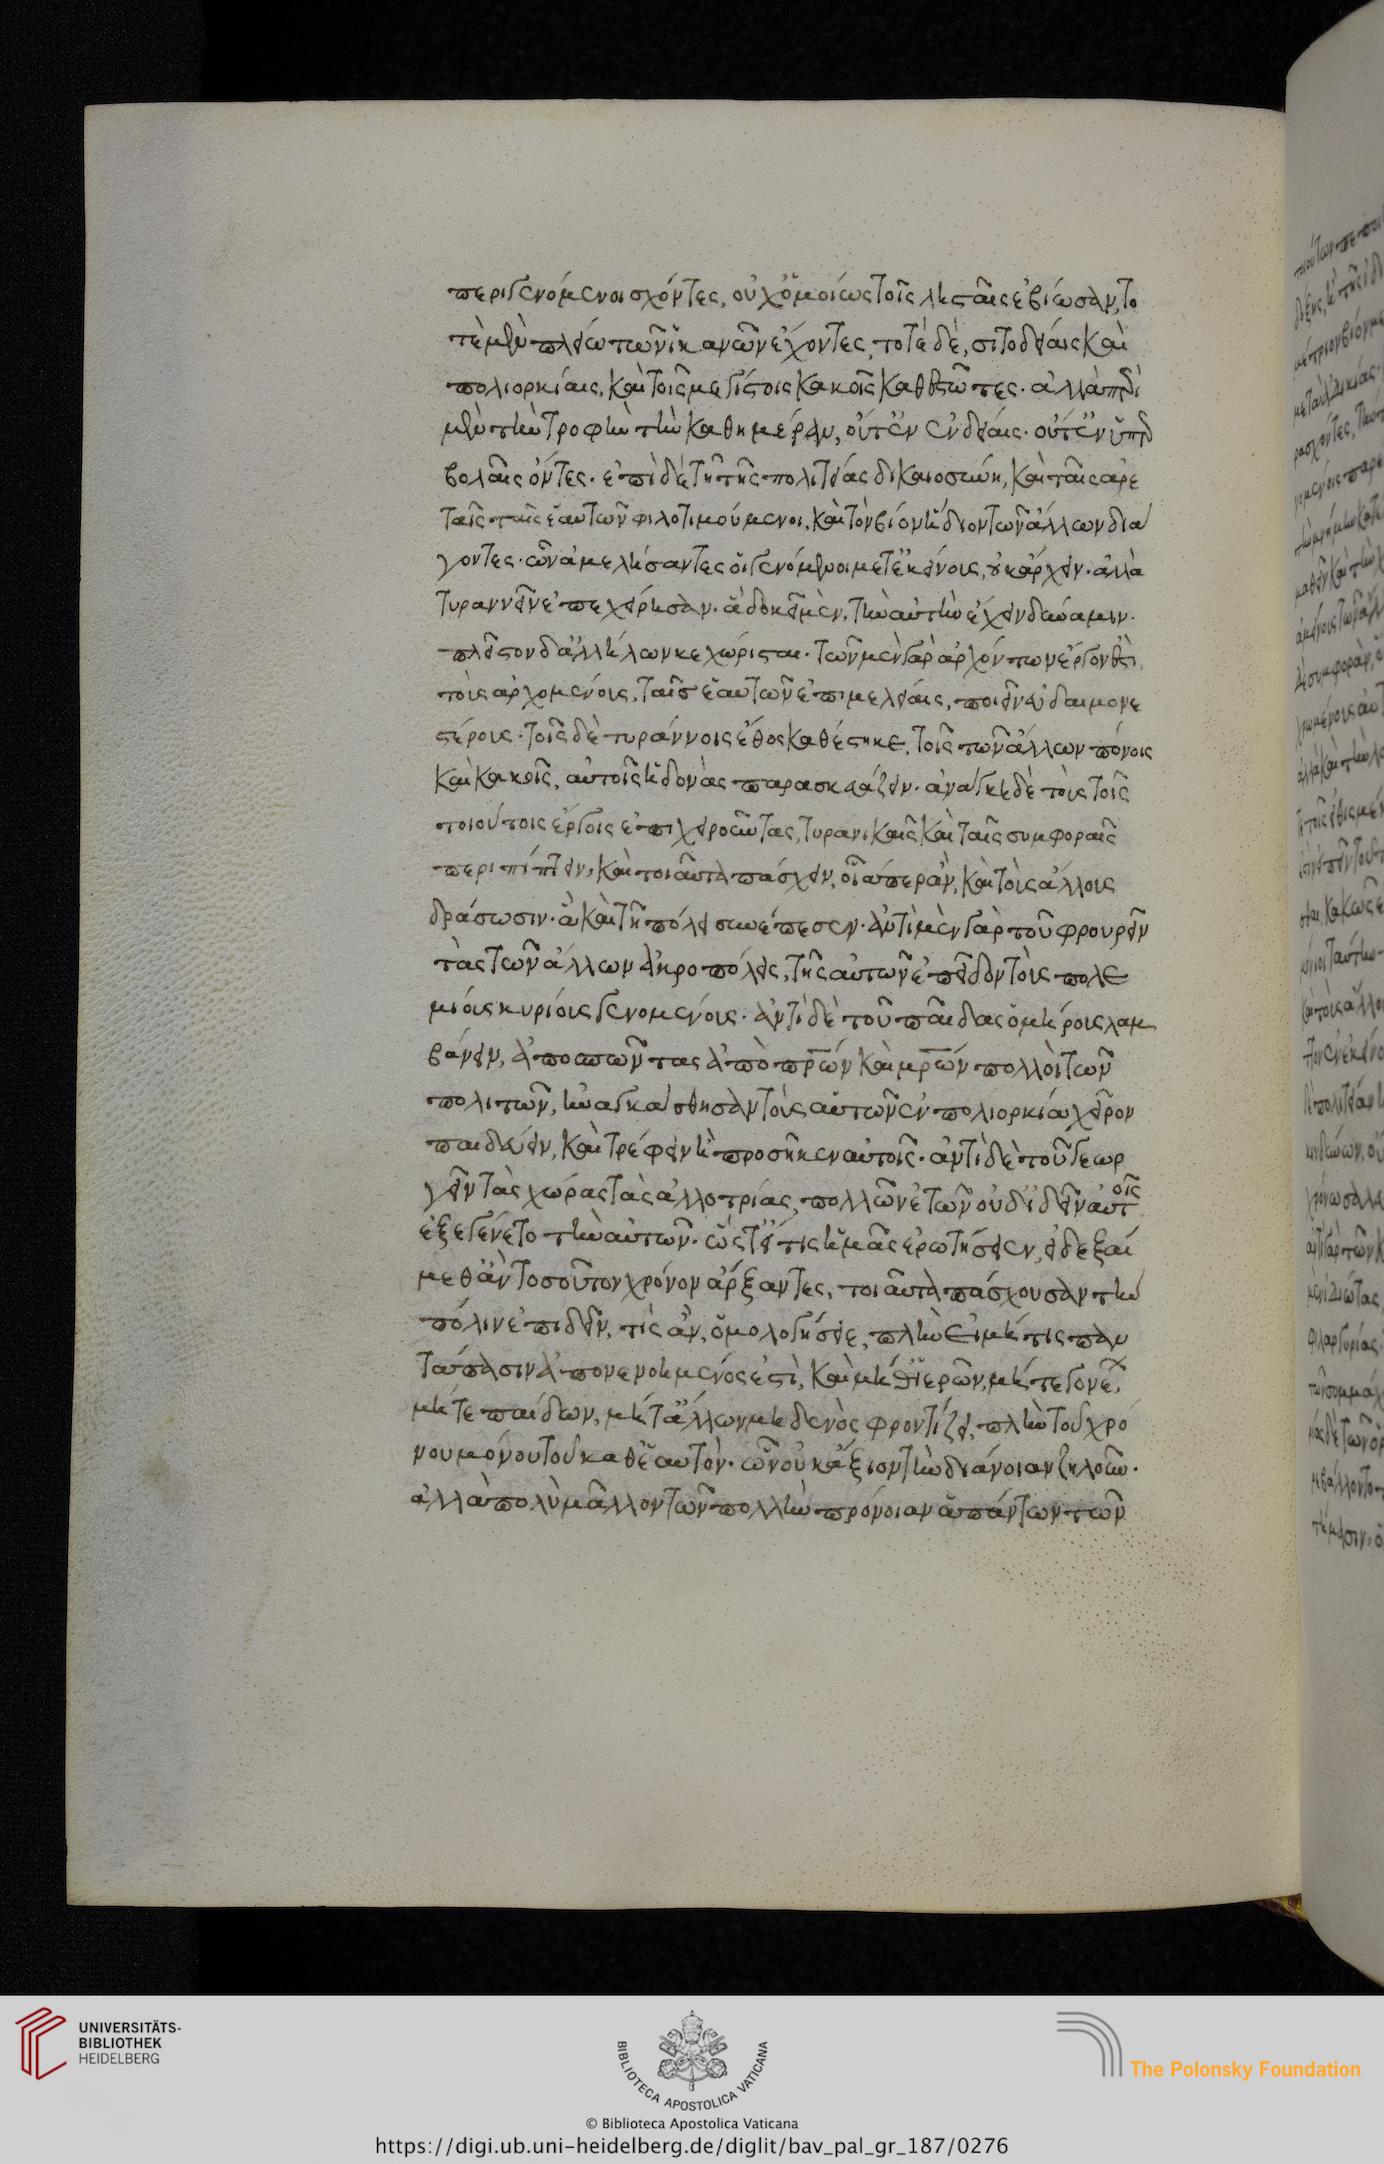 περιγενόμενοι σχόντες, οὐχ ὁμοίως τοῖς λῃσταῖς ἐβίωσαν, το
τὲ μὲν πλείω τῶν ἱκανῶν ἔχοντες, τοτὲ δὲ, σιτοδείαις καὶ
πολιορκίαις, καὶ τοῖς μεγίστοις κακοῖς καθεστῶτες. ἀλλὰ περὶ
μὲν τὴν τροφὴν τὴν καθημέραν, οὔτ' ἐν ἐνδείαις. οὔτ' ἐν ὑπερ
βολαῖς ὄντες. ἐπὶ δὲ τῆ τῆς πολιτείας δικαιοσύνη, καὶ ταῖς ἀρε
ταῖς ταῖς ἑαυτῶν φιλοτιμούμενοι, καὶ τὸν βίον ἥδιον τῶν ἄλλων διά
γοντες. ὧν ἀμελήσαντες οἱ γενόμενοι μετ' ἐκείνοις, οὐκ ἄρχειν. ἀλλὰ
τυραννεῖν ἐπεχείρησαν. ἃ δοκεῖ μὲν, τὴν αὐτὴν ἔχειν δύναμιν.
πλεῖστον δ' ἀλλήλων κεχώρισται. τῶν μὲν γὰρ ἀρχόντων ἔργον ἐστὶ,
τοὺς ἀρχομένους, ταῖς ἑαυτῶν ἐπιμελείαις, ποιεῖν εὐδαιμονε
στέρους. τοῖς δὲ τυράννοις ἔθος καθέστηκε, τοῖς τῶν ἄλλων πόνοις
καὶ κακοῖς, αὐτοῖς ἡδονὰς παρασκευάζειν. ἀνάγκη δὲ τοὺς τοῖς
τοιούτοις ἔργοις ἐπιχειροῦντας, τυρανικαῖς καὶ ταῖς συμφοραῖς
περιπίπτειν, καὶ τοιαῦτα πάσχειν, οἷάπερ ἂν, καὶ τοὺς ἄλλους
δράσωσιν. ἃ καὶ τῆ πόλει συνέπεσεν. ἀντὶ μὲν γὰρ τοῦ φρουρεῖν
τὰς τῶν ἄλλων ἀκροπόλεις, τῆς αὑτῶν ἐπεῖδον τοὺς πολε
μίους κυρίους γενομένους. ἀντὶ δὲ τοῦ παῖδας ὁμήρους λαμ
βάνειν, ἀποσπῶντας ἀπὸ πρων καὶ μρων πολλοὶ τῶν
πολιτῶν, ἠναγκάσθησαν τοὺς αὑτῶν ἐν πολιορκία χεῖρον
παιδεύειν, καὶ τρέφειν ἢ προσῆκεν αὐτοῖς. ἀντὶ δὲ τοῦ γεωρ
γεῖν τὰς χώρας τὰς ἀλλοτρίας, πολλῶν ἐτῶν οὐδ' ἰδεῖν αὐτοῖς
ἐξεγένετο τὴν αὑτῶν. ὥστ' εἴ τις ἡμᾶς ἐρωτήσειεν, εἰ δεξαί
μεθ' ἂν τοσοῦτον χρόνον ἄρξαντες, τοιαῦτα πάσχουσαν τὴν
πόλιν ἐπιδεῖν, τίς ἂν, ὁμολογήσειε, πλὴν εἰ μή τις παν
τάπασιν ἀπονενοημένος ἐστὶ, καὶ μήθ' ἱερῶν, μήτε γονέ(ων),
μήτε παίδων, μήτ' ἄλλων μηδενὸς φροντίζει, πλὴν τοῦ χρό
νου μόνου τοῦ καθ' ἑαυτὸν. ὧν οὐκ ἄξιον τὴν διάνοιαν ζηλοῦν.
ἀλλὰ πολὺ μᾶλλον τῶν πολλὴν πρόνοιαν ἁπάντων τῶν
UNIVERSITÄTS-
BIBLIOTHEK
HEIDELBERG
BIBLIOTECA APOSTOLICA VATICANA
The Polonsky Foundation
© Biblioteca Apostolica Vaticana
https://digi.ub.uni-heidelberg.de/diglit/bav_pal_gr_187/0276